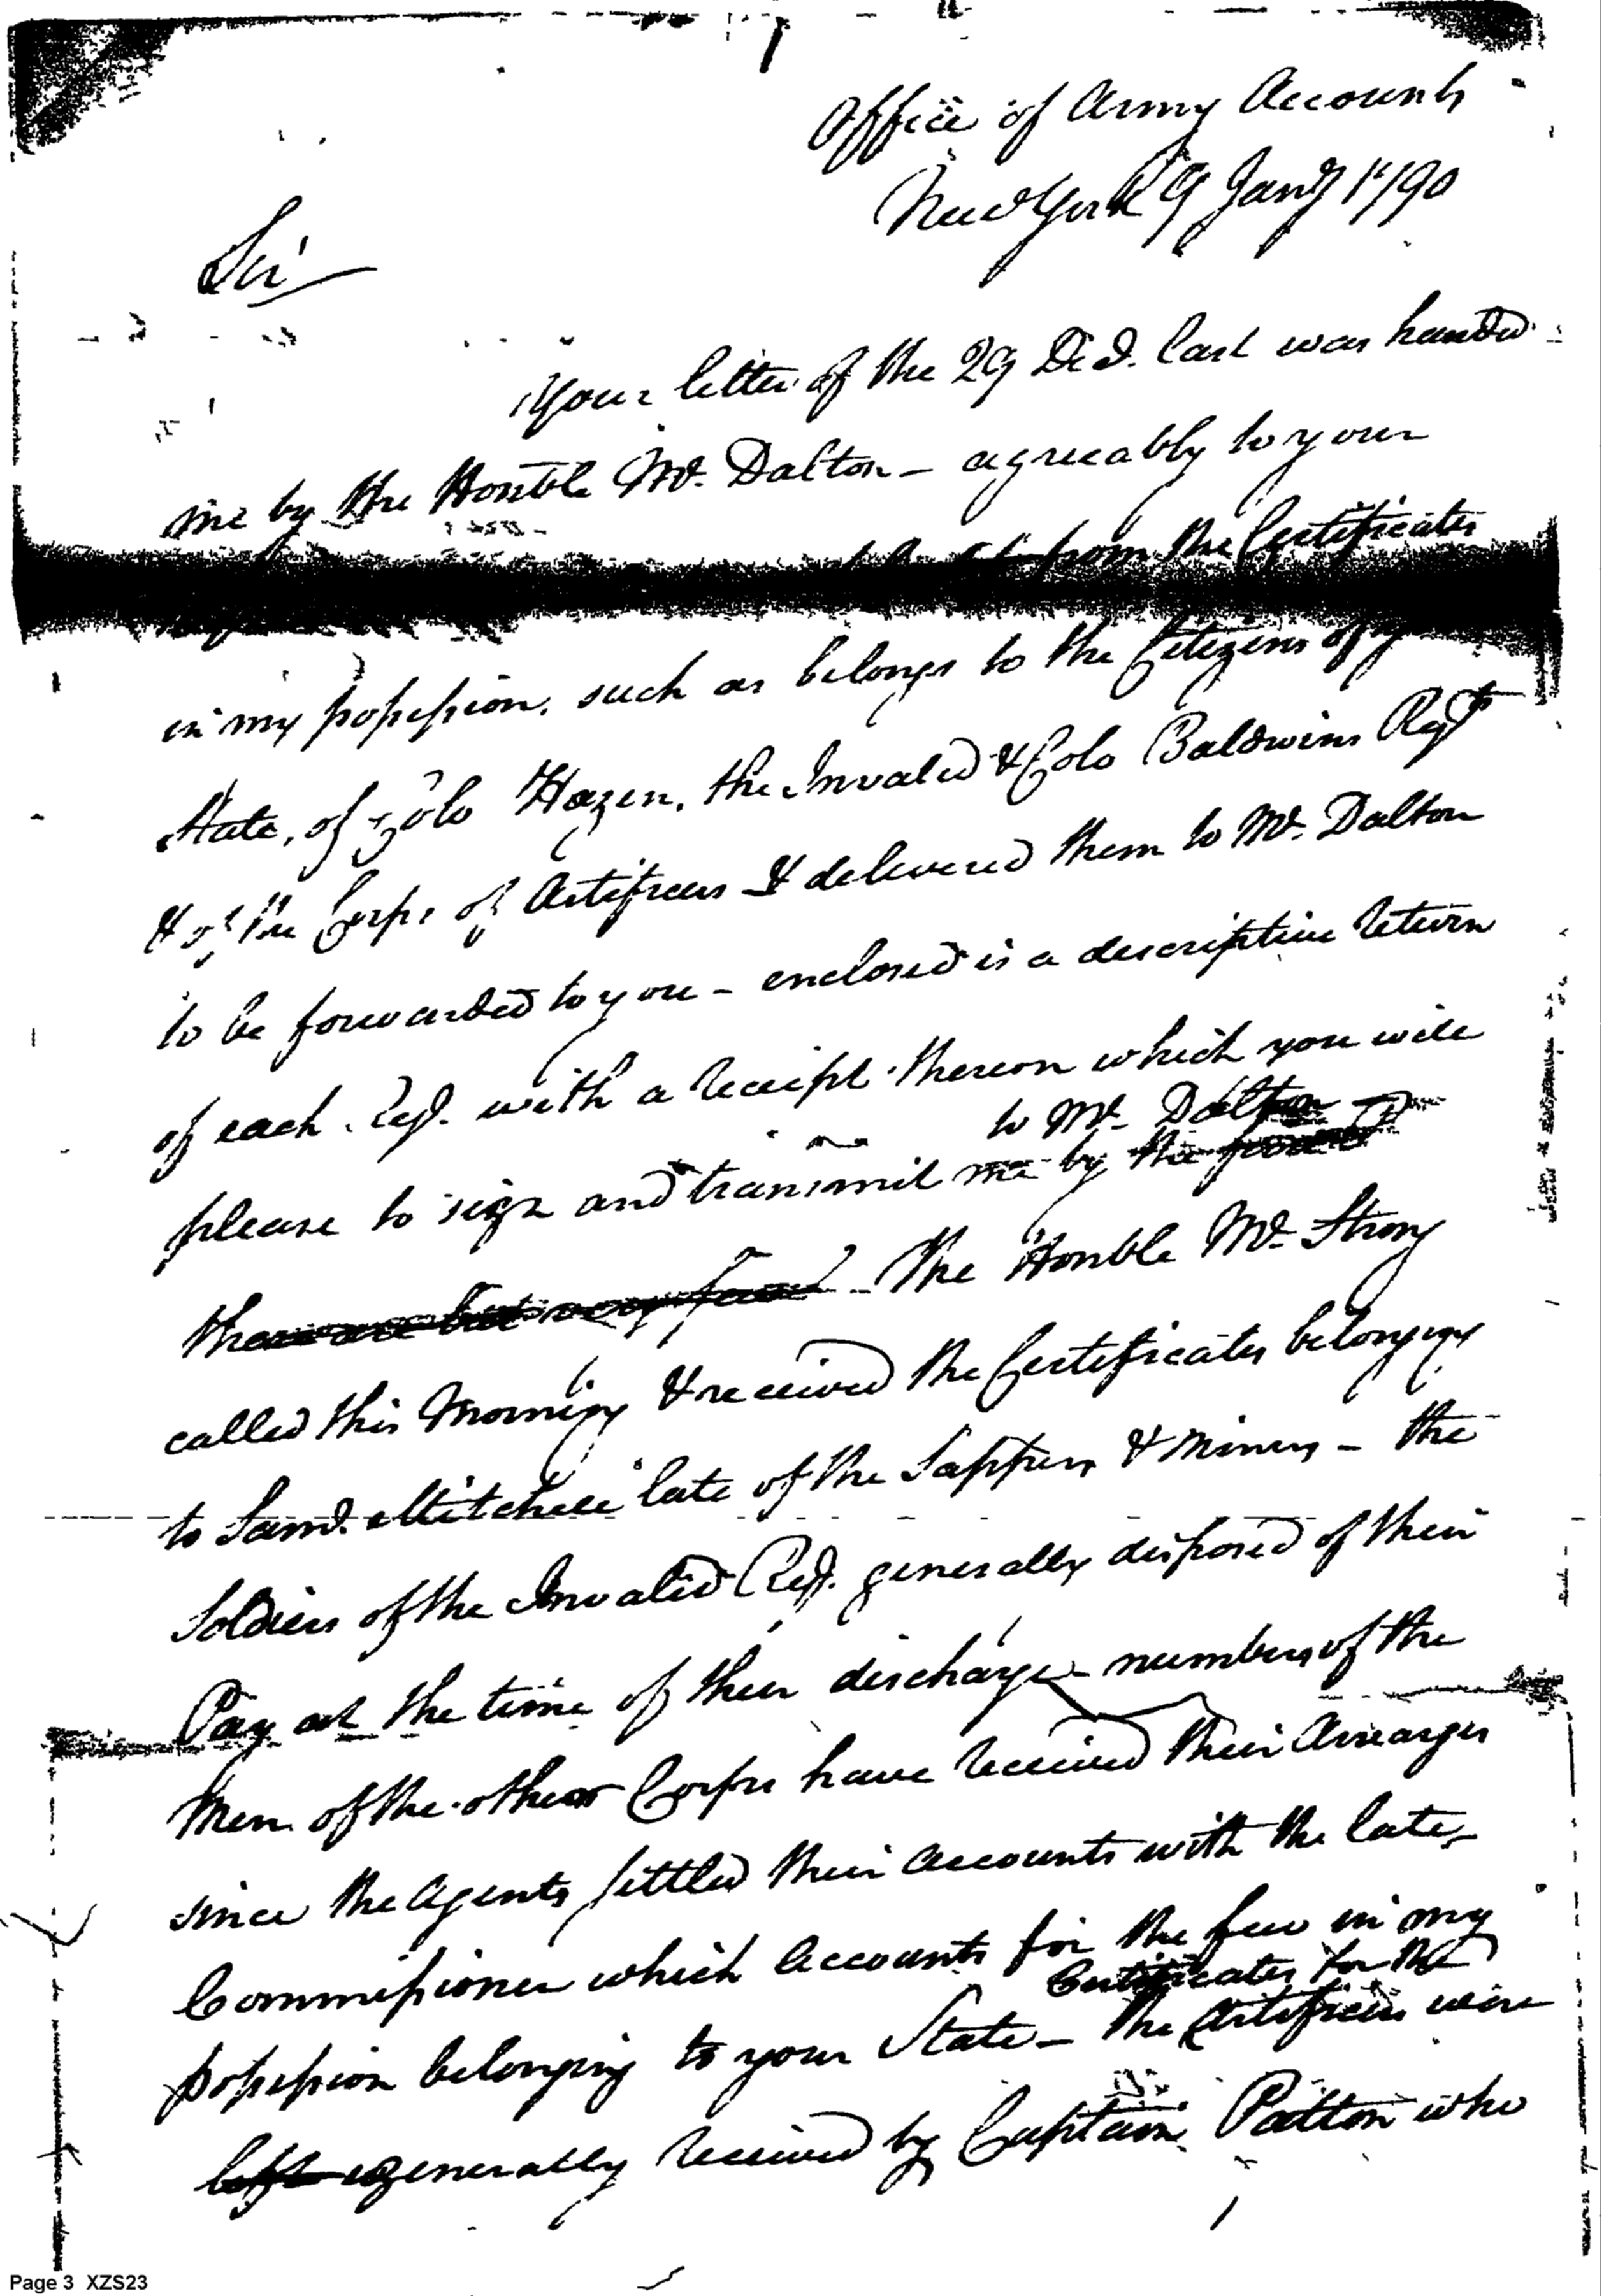 Office of Army Accounts
New York 9 Jany 1790
Sir
Your letter of the 29 Decd. last was handed
me by the Honble Mr. Dalton – agreeably to your
from the Certificates
in my possession, such as belongs to the Citizens of
State, of Colo Hazen, the Invalid & Colo Baldwins Regts
& of the Corps of Artificers & delivered them to Mr. Dalton
to be forwarded to you – enclosed is a descriptive return
of each Regt. with a receipt thereon which you will
to Mr. Dalton
please to sign and transmit me by the
there are but very few The Honble Mr. Strong
called this Morning & received the Certificates belonging
to Saml. Mitchell late of the Sappers & Miners – the
Soldiers of the Invalid Regt. generally disposed of their
Pay at the time of their discharge – numbers of the
Men of the other Corps have received their Arrearges
since the Agents settled their Accounts with the late
Commissioner which Accounts for the few in my
Certificates for the
possession belonging to your State – the Artificers were
left generally received by Captain Patton who
Page 3 XZS23